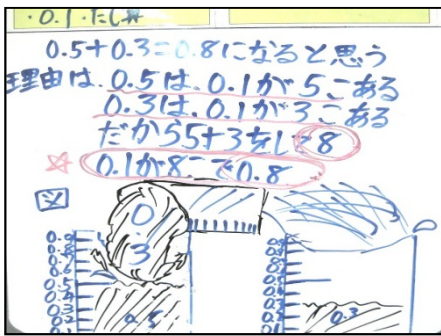 ・0.1・たし算
0.5+0.3=0.8になると思う
理由は、0.5は、0.1が5こある
0.3は、0.1が3こある
だから5+3をして8
☆ 0.1が8こで0.8
図
0.3
0.9
0.8
0.7
0.6
0.5
0.4
0.3
0.2
0.1
0.5
0.9
0.8
0.7
0.6
0.5
0.4
0.3
0.2
0.1
0.3